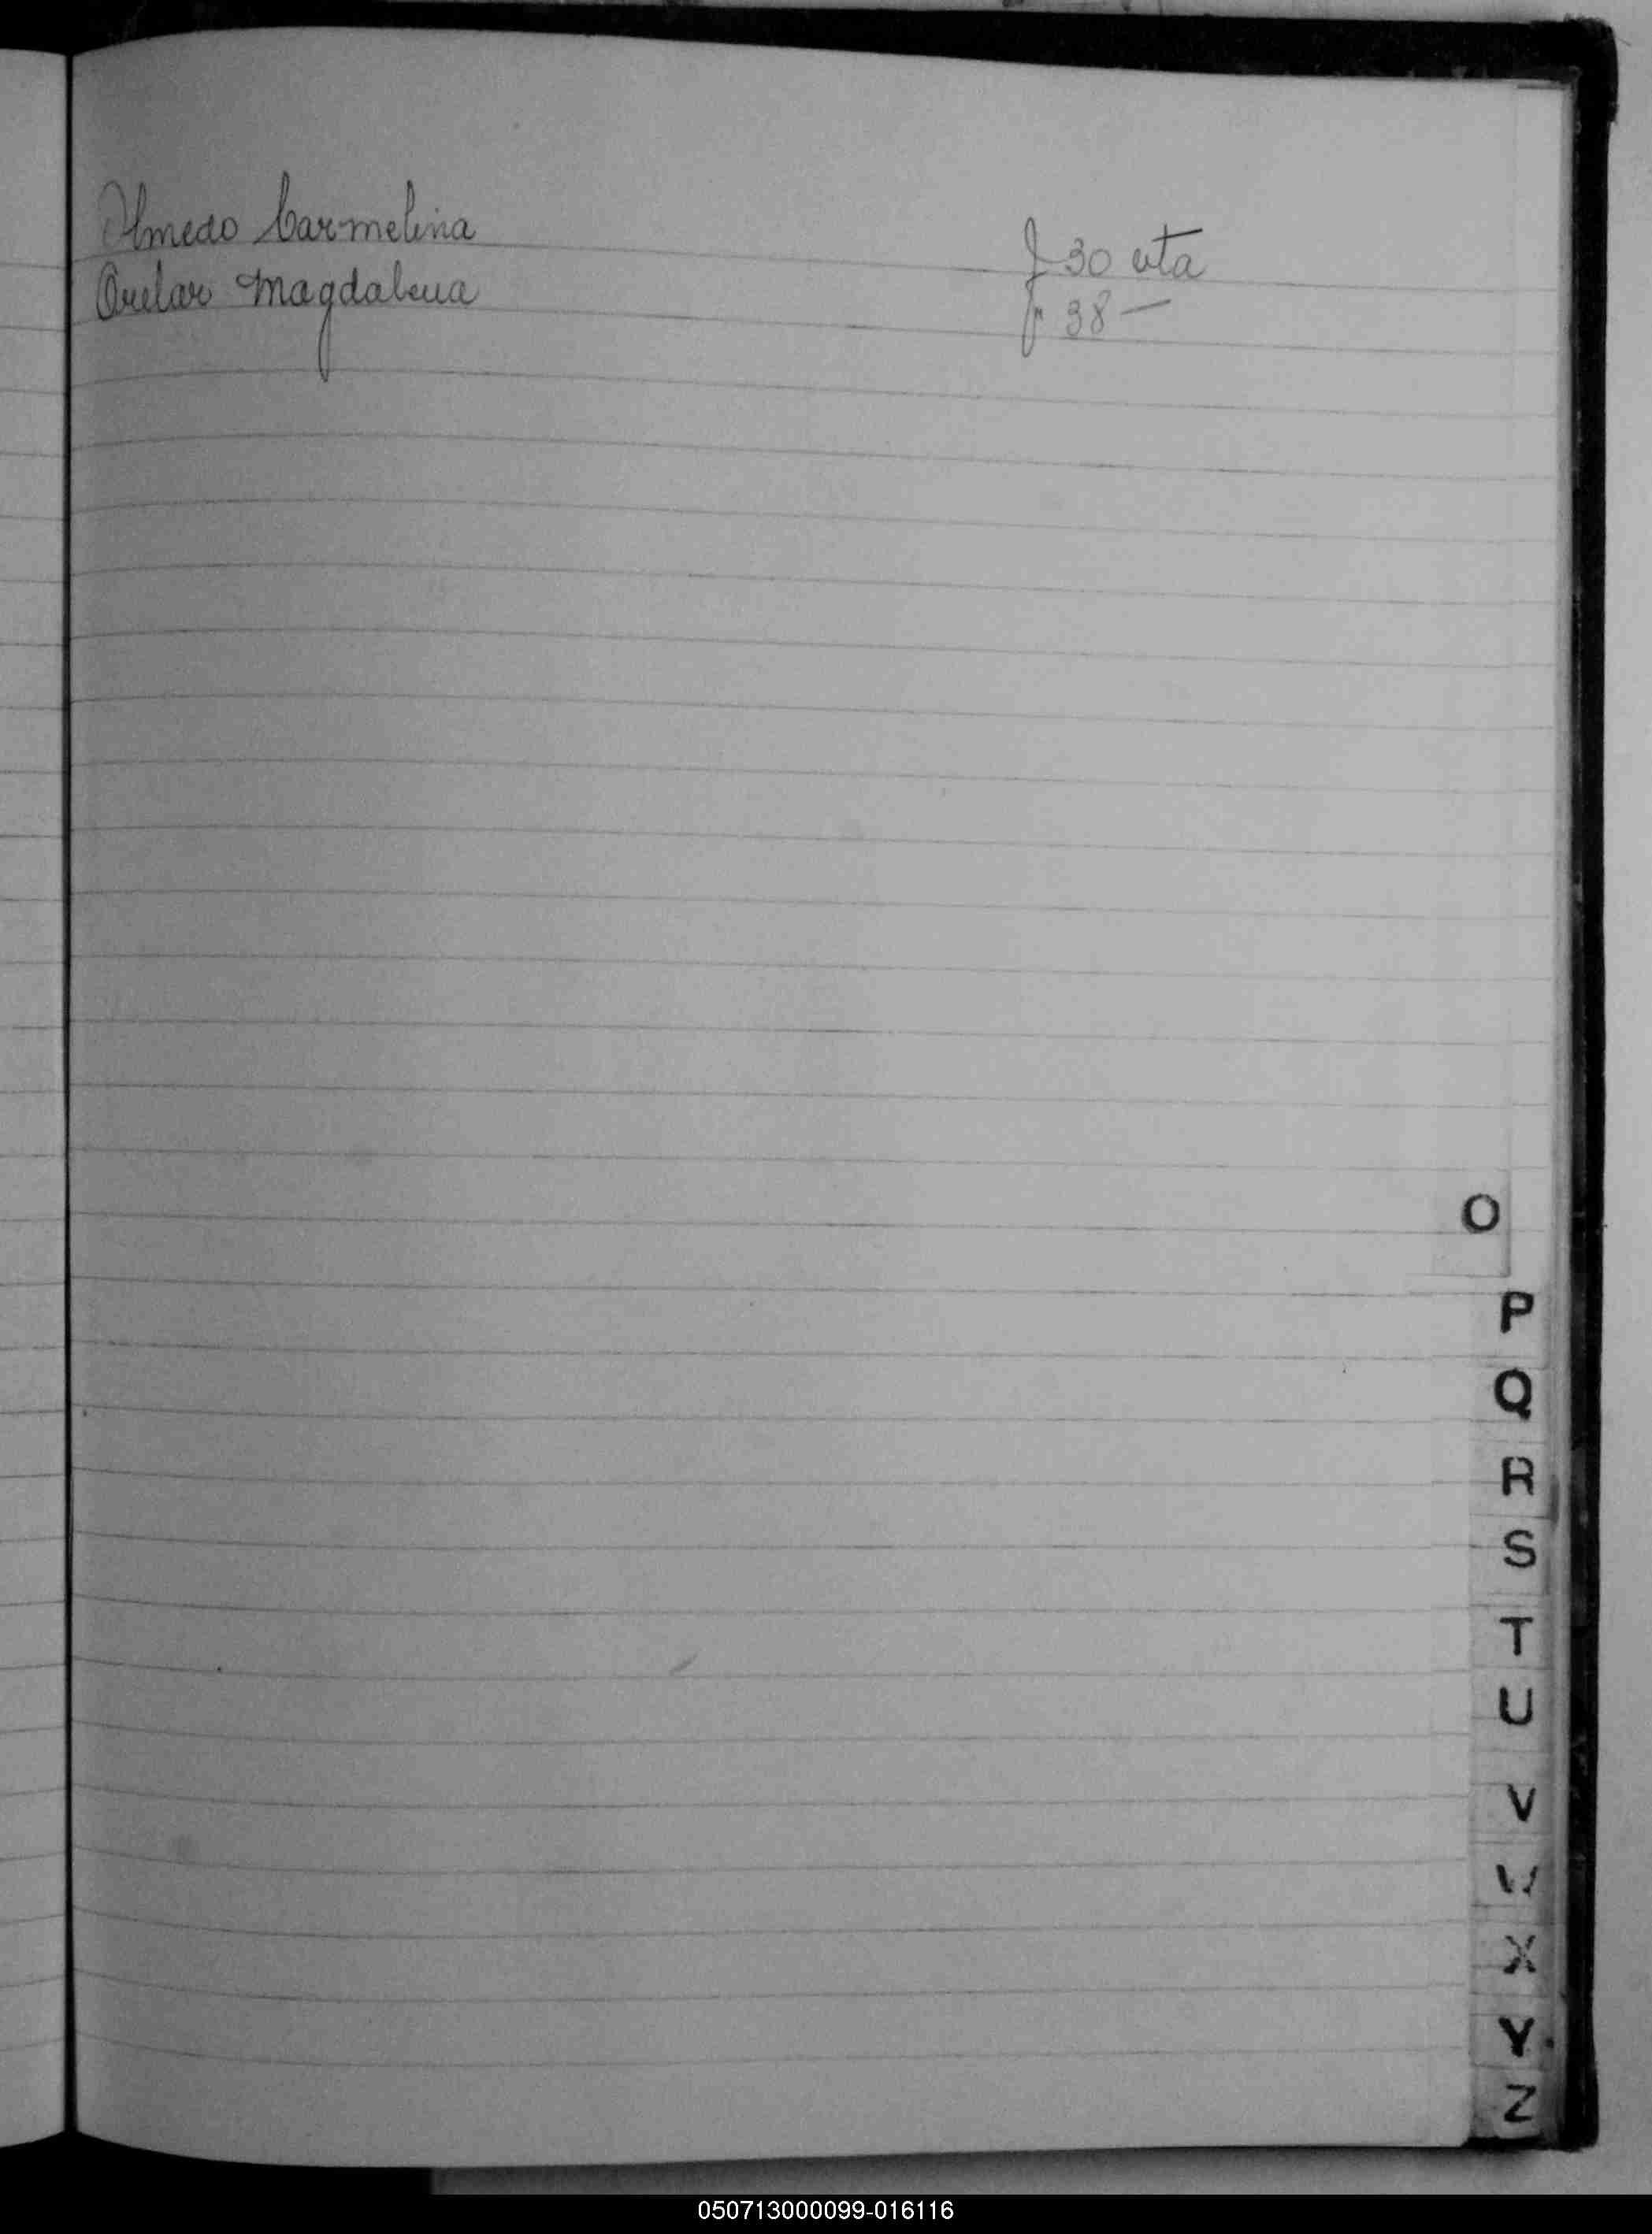 Olmedo Carmelina f 30 vta
Orelar Magdalena f 38 —
O
P
Q
R
S
T
U
V
W
X
Y
Z
050713000099-016116